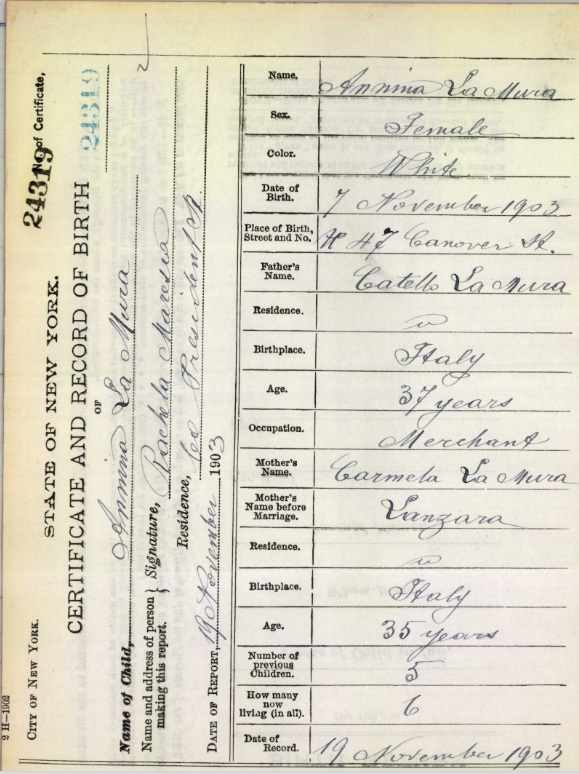 2 H-1902
CITY OF NEW YORK.
STATE OF NEW YORK.
24319 No. of Certificate,
24319
CERTIFICATE AND RECORD OF BIRTH
OF
Name of Child, Annina La Mura
Name and address of person making this report. } Signature, Rachela Maresca
Residence, 60 President St.
DATE OF REPORT, 19 November 1903
Name. Annina La Mura
Sex. Female
Color. White
Date of Birth. 7 November 1903
Place of Birth, Street and No. # 47 Conover St.
Father's Name. Catello La Mura
Residence. "
Birthplace. Italy
Age. 37 years
Occupation. Merchant
Mother's Name. Carmela La Mura
Mother's Name before Marriage. Lanzara
Residence. "
Birthplace. Italy
Age. 35 years
Number of previous Children. 5
How many now living (in all). 6
Date of Record. 19 November 1903